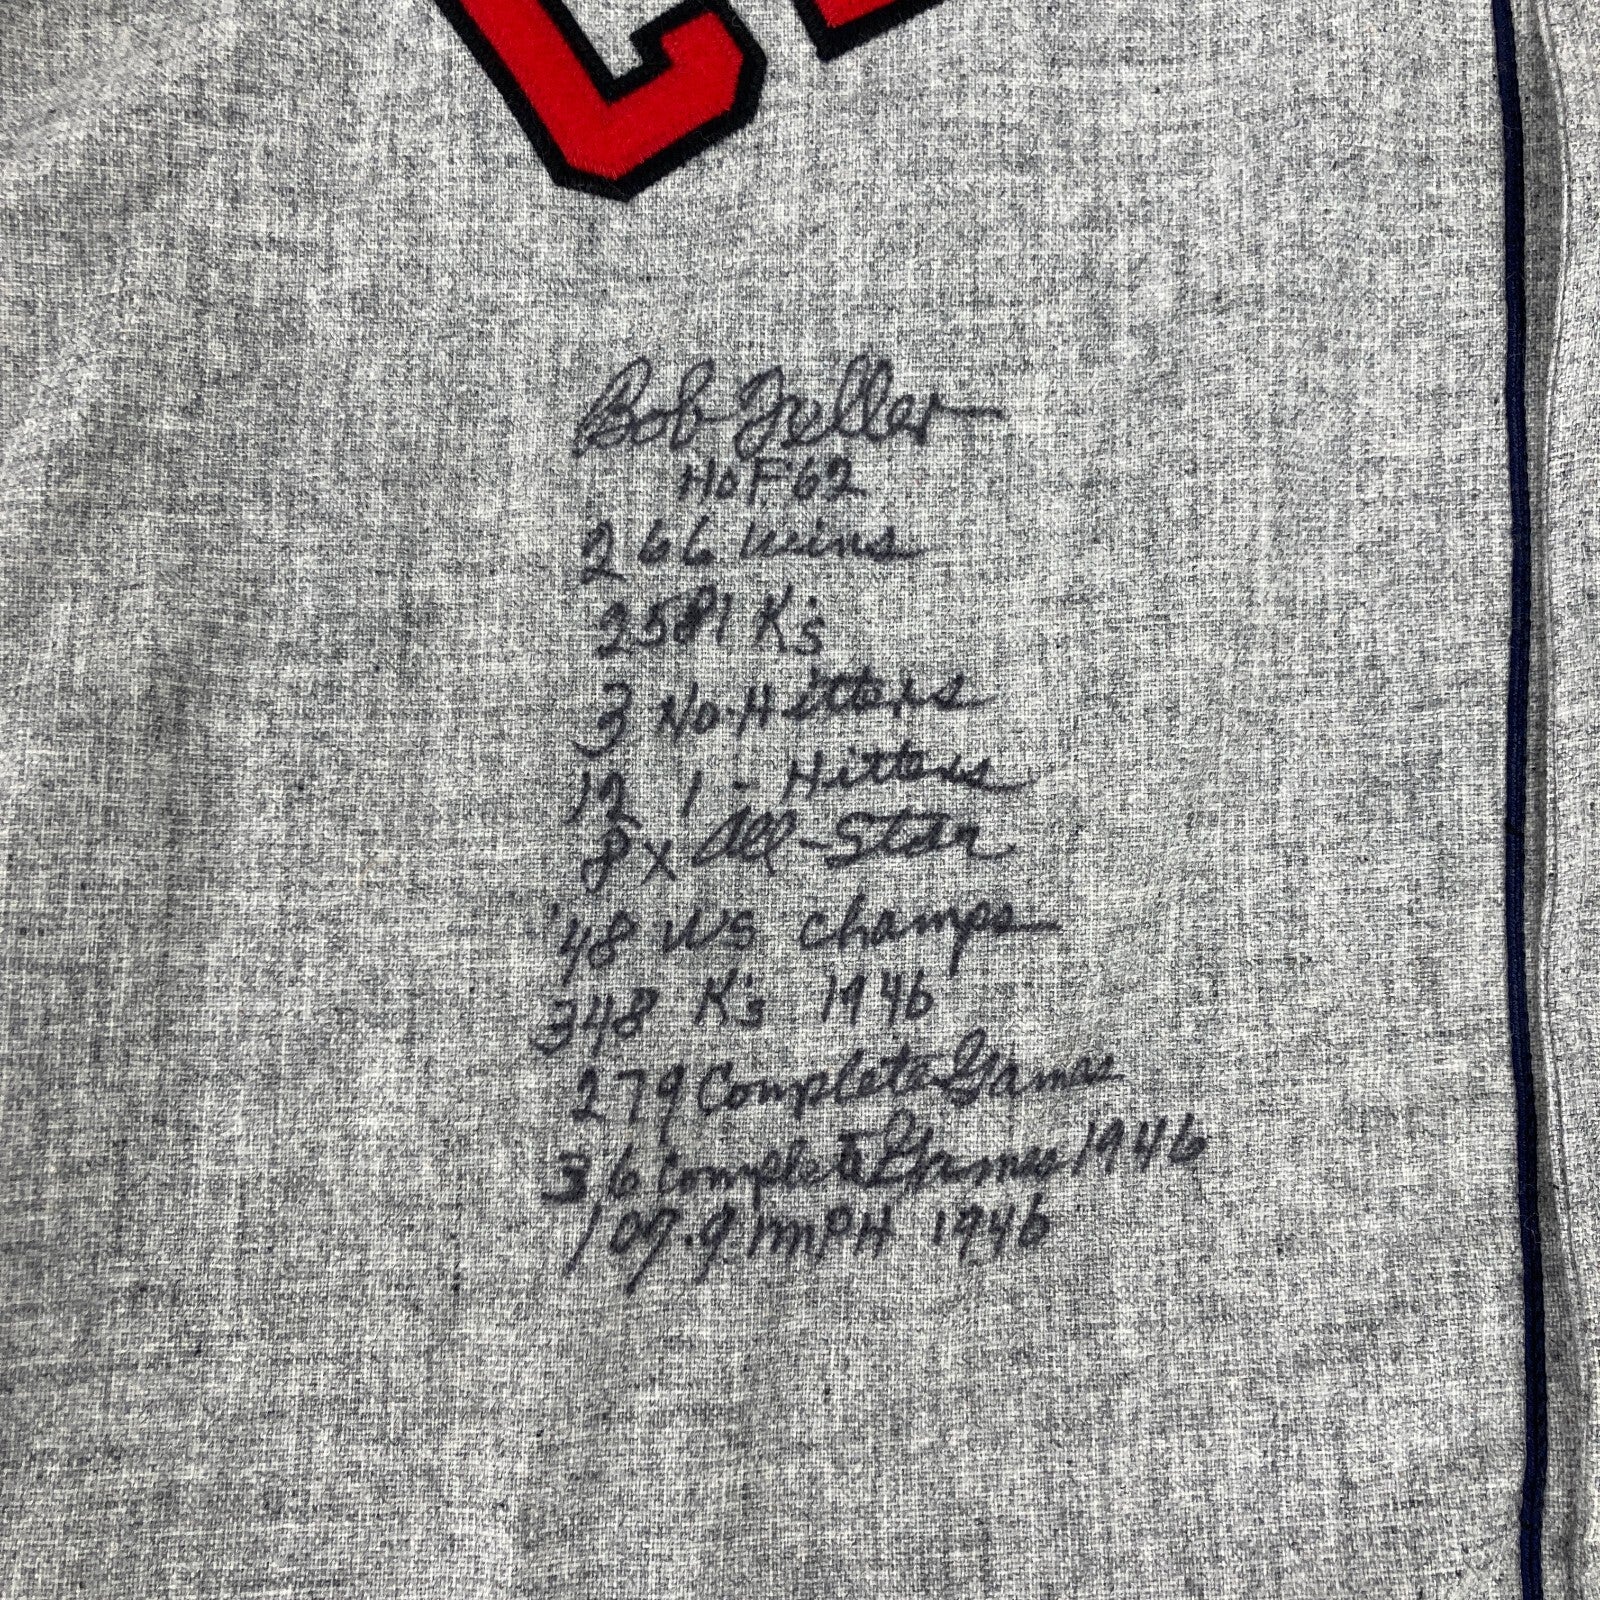 C
Bob Feller
HOF '62
266 Wins
2581 K's
3 No-Hitters
12 1-Hitters
8x All-Star
'48 WS Champs
348 K's 1946
279 Complete Games
36 Complete Games 1946
107.9 MPH 1946